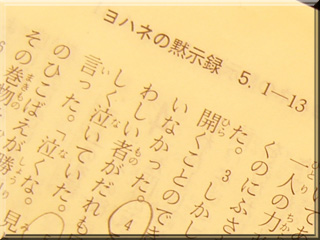 ヨハネの黙示録 5. 1—13
一人の力
くのにふさ
た。 3 しかし
開くことのでき
いなかった。 4
わしい者がだれも
しく泣いていた。
言った。「泣くな。見
のひこばえが勝
その巻物